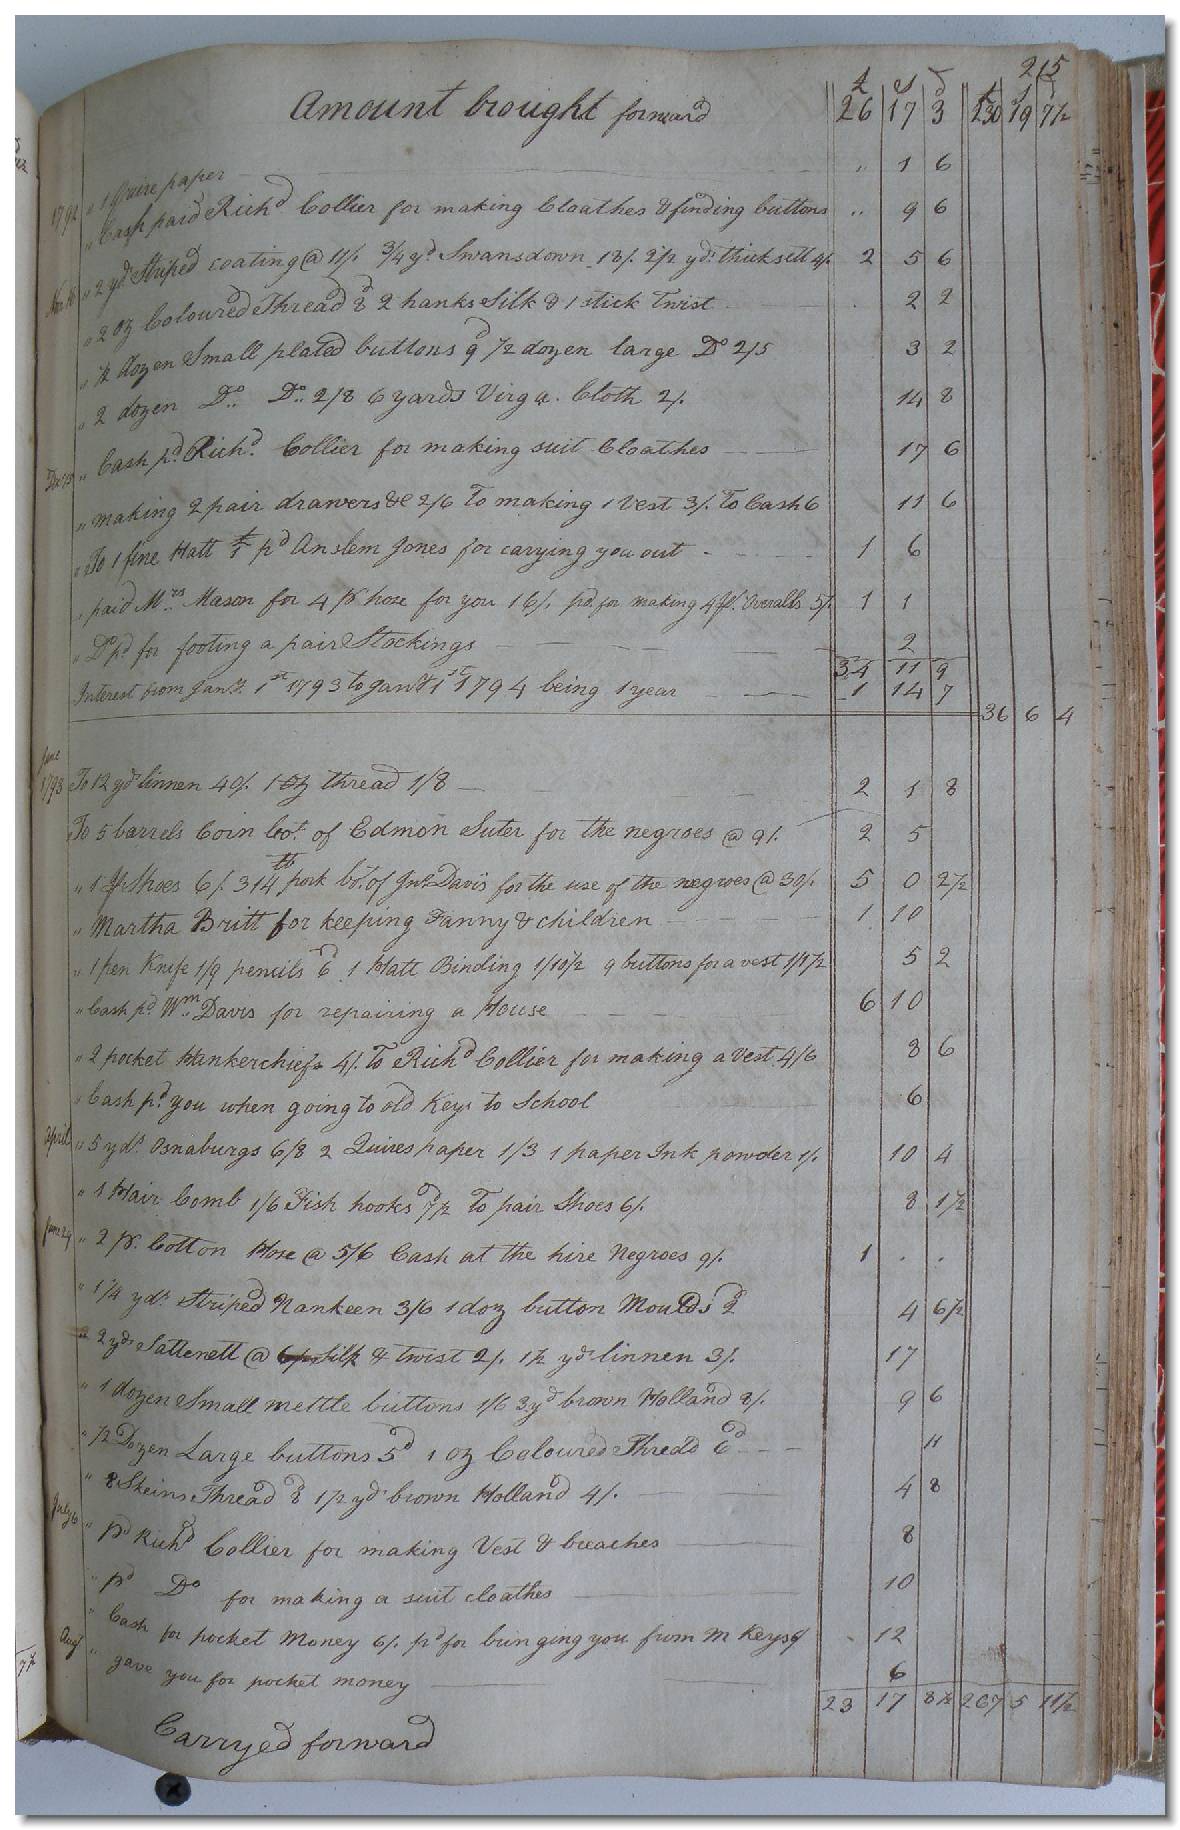 215
£ s d £ s d
Amount brought forward 26 17 3 230 19 7½
1792 " 1 Quire paper " 1 6
" Cash paid Richd Collier for making Cloathes & finding buttons " 9 6
" 2 yds Striped coating @ 11/. ¾ yd Swansdown 18/. 2½ yds thicksett 4/. 2 5 6
" 2 oz Coloured Thread 8d 2 hanks Silk & 1 stick Twist 2 2
" ½ dozen Small plated buttons 9d ½ dozen large Do 2/5 3 2
" 2 dozen Do Do 2/8 6 yards Virga. Cloth 2/. 14 8
" Cash pd Richd Collier for making suit Cloathes 17 6
" making 2 pair drawers &c 2/6 To making 1 Vest 3/. To Cash 6 11 6
" To 1 fine Hatt £1 pd Anslem Jones for carrying you out 1 6
" paid Mrs Mason for 4 pr hose for you 16/. pd for making 4 pr Overalls 5/. 1 1
" Do pd for footing a pair Stockings 2
34 11 9
Interest from Jany. 1st 1793 to Jany 1st 1794 being 1 year 1 14 7
36 6 4
June
1793 To 12 yds linnen 40/. 1 oz thread 1/8 2 1 8
To 5 barrels Corn bot. of Edmon Suter for the negroes @ 9/. 2 5
" 1 pr Shoes 6/. 314 lb pork bt. of Jno. Davis for the use of the negroes @ 30/. 5 0 2½
" Martha Britt for keeping Fanny & children 1 10
" 1 pen Knife 1/9 pencils 6d 1 Hatt Binding 1/10½ 9 buttons for a vest 1/1½ 5 2
" Cash pd. Wm Davis for repairing a House 6 10
" 2 pocket Hankerchiefs 4/. To Richd Collier for making a Vest 4/6 8 6
" Cash pd. you when going to old Keys to School 6
April " 5 yds. Osnaburgs 6/8 2 Quires paper 1/3 1 paper Ink powder 1/. 10 4
" 1 Hair Comb 1/6 Fish hooks 7½d To pair Shoes 6/. 8 1½
June 24 " 2 pr. Cotton Hose @ 5/6 Cash at the hire Negroes 9/. 1 . .
" 1¼ yds. Striped Nankeen 3/6 1 doz button Moulds 4 6½
" 2 yds Sattenett @ 6/. Silk & twist 2/. 1½ yds linnen 3/. 17
" 1 dozen Small mettle buttons 1/6 3 yd brown Holland 8/. 9 6
" ½ Dozen Large buttons 5d 1 oz Coloured Thredd 6d 11
" 8 Skeins Thread 8d 1½ yd brown Holland 4/. 4 8
July 6 " pd Richd Collier for making Vest & breaches 8
" pd Do for making a suit cloathes 10
" Cash for pocket Money 6/. pd for bringing you from M Keys 12
Augt " gave you for pocket money 6
23 17 8½ 267 5 11½
Carryed forward